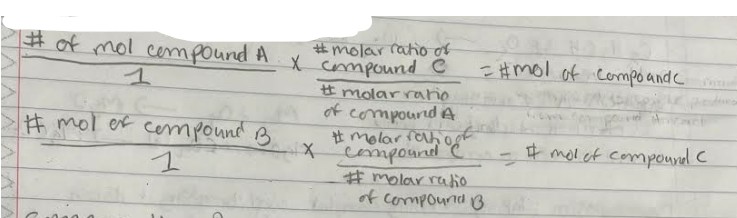 # of mol compound A / 1 x # molar ratio of compound C / # molar ratio of compound A = # mol of compound C
# mol of compound B / 1 x # molar ratio of compound C / # molar ratio of compound B = # mol of compound C